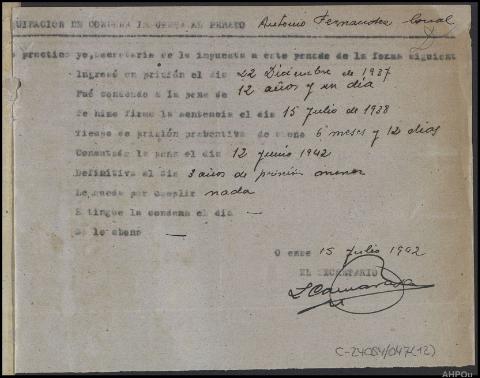 QUIDACION DE CONDENA IMPUESTA AL PENADO Antonio Fernandez
practico yo, secretario de la impuesta a este penado de la forma siguient
Ingresó en prisión el dia 22 Diciembre de 1937
Fué condenado a la pena de 12 años y un día
Se hizo firme la sentencia el dia 15 julio de 1938
Tiempo de prisión preventiva de abono 6 meses y 12 días
Comenzó la pena el dia 12 junio 1942
Definitiva el dia 3 años de prisión menor
Le queda por cumplir nada
Extingue la condena el dia —
Se le abono —
O ense 15 julio 1942
EL SECRETARIO
C-24084/047(12)
AHPOu